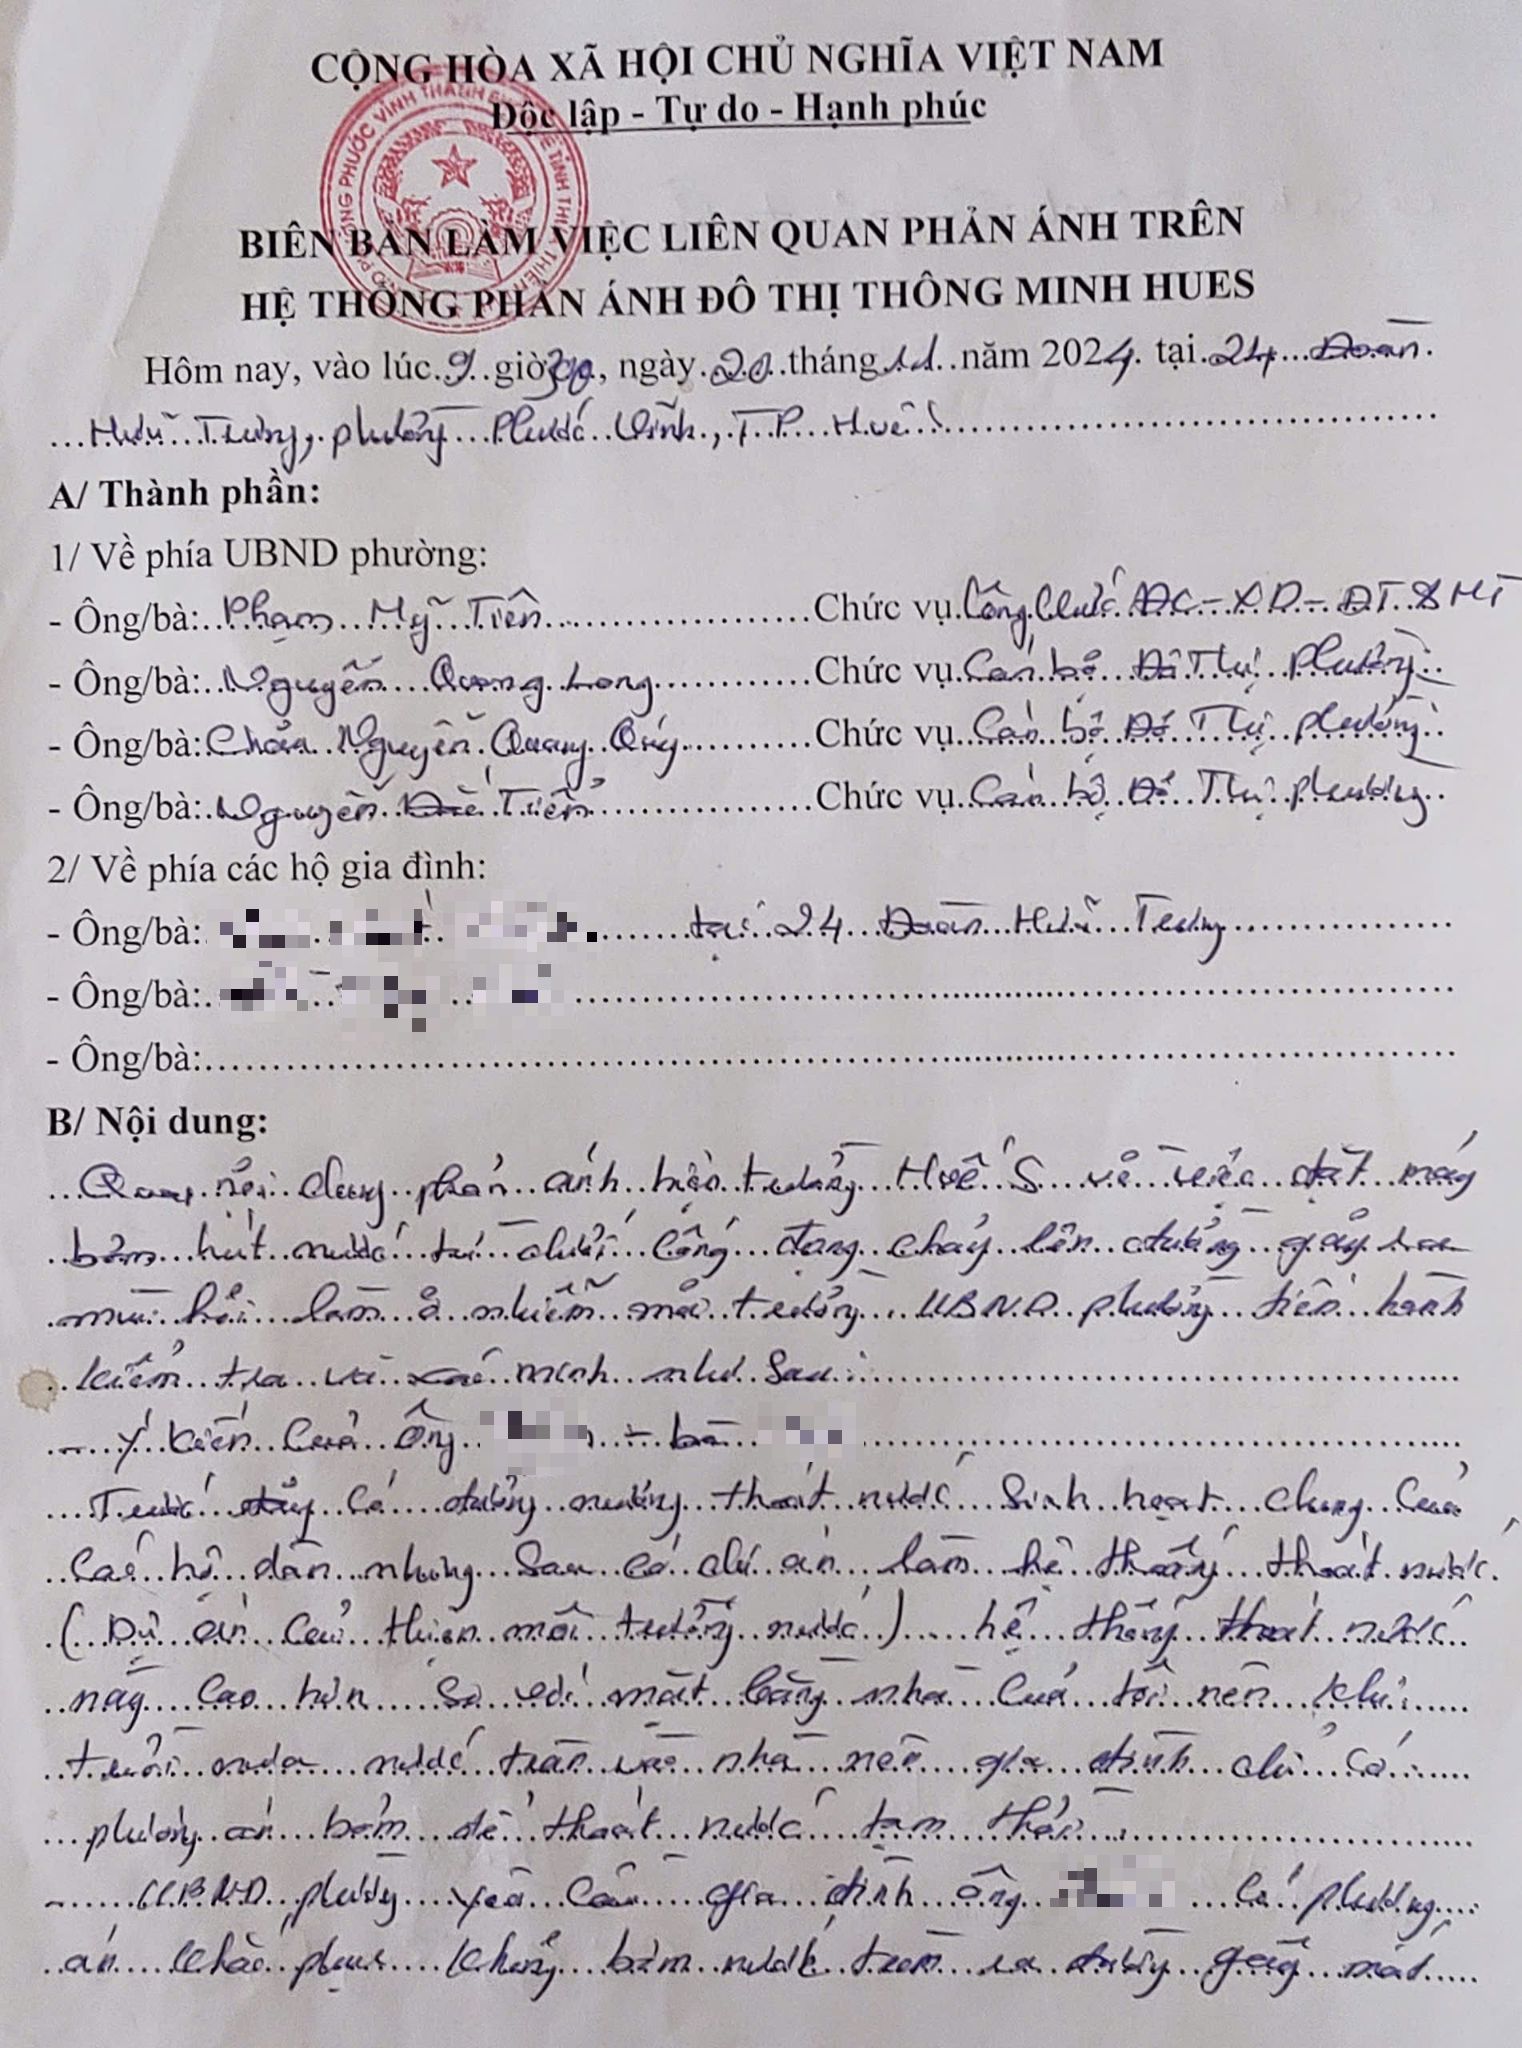 CỘNG HÒA XÃ HỘI CHỦ NGHĨA VIỆT NAM
Độc lập - Tự do - Hạnh phúc
BIÊN BẢN LÀM VIỆC LIÊN QUAN PHẢN ÁNH TRÊN
HỆ THỐNG PHẢN ÁNH ĐÔ THỊ THÔNG MINH HUES
Hôm nay, vào lúc 9 giờ 30, ngày 20 tháng 11 năm 2024 tại 24 Đoàn
Hữu Trưng, phường Phước Vĩnh, TP Huế
A/ Thành phần:
1/ Về phía UBND phường:
- Ông/bà: Phạm Mỹ Tiên Chức vụ Công Chức ĐC-XD-ĐT & MT
- Ông/bà: Nguyễn Quang Long Chức vụ Cán bộ Đô Thị phường
- Ông/bà: Nguyễn Quang Quý Chức vụ Cán bộ Đô Thị phường
- Ông/bà: Nguyễn Tiến Chức vụ Cán bộ Đô Thị phường
2/ Về phía các hộ gia đình:
- Ông/bà: tại 24 Đoàn Hữu Trưng
- Ông/bà:
- Ông/bà:
B/ Nội dung:
Qua nội dung phản ánh hiện trường Huế S về việc đặt máy
bơm hút nước từ dưới cống đang chảy lên đường gây ra
mùi hôi làm ô nhiễm môi trường. UBND phường tiến hành
kiểm tra và xác minh như sau:
- Ý kiến của ông - bà
Trước đây có đường mương thoát nước sinh hoạt chung của
các hộ dân nhưng sau có dự án làm hệ thống thoát nước
(Dự án cải thiện môi trường nước) hệ thống thoát nước
này cao hơn so với mặt bằng nhà của tôi nên khi
trời mưa nước tràn vào nhà nên gia đình chỉ có
phương án bơm để thoát nước tạm thời.
- UBND phường yêu cầu gia đình ông có phương
án khắc phục không bơm nước tràn ra đường gây mất